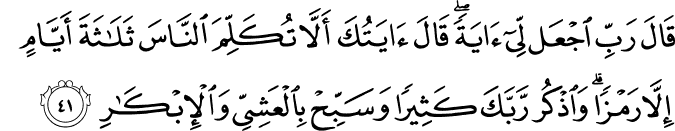 قَالَ رَبِّ ٱجۡعَل لِّيٓ ءَايَةٗۖ قَالَ ءَايَتُكَ أَلَّا تُكَلِّمَ ٱلنَّاسَ ثَلَٰثَةَ أَيَّامٍ
إِلَّا رَمۡزٗاۗ وَٱذۡكُر رَّبَّكَ كَثِيرٗا وَسَبِّحۡ بِٱلۡعَشِيِّ وَٱلۡإِبۡكَٰرِ ٤١